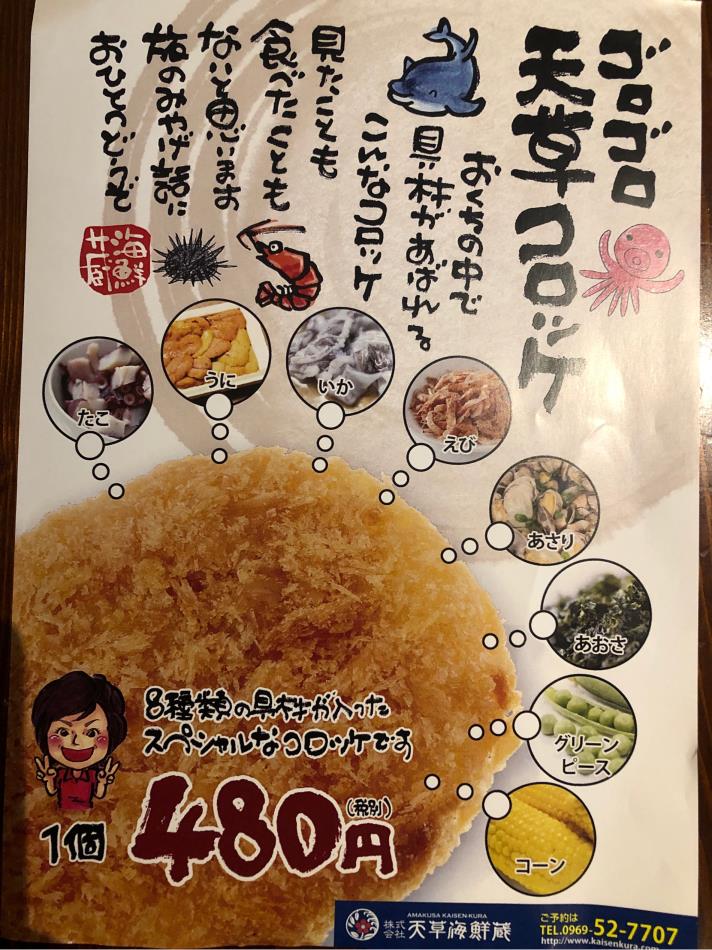 ゴロゴロ
天草コロッケ
おくちの中で
具材があばれる
こんなコロッケ
見たことも
食べたことも
ないと思います
旅のみやげ話に
おひとつどうぞ
海鮮
たこ
うに
いか
えび
あさり
あおさ
グリーン
ピース
コーン
8種類の具材が入った
スペシャルなコロッケです
1個 480円
(税別)
AMAKUSA KAISEN-KURA
株式会社 天草海鮮蔵
ご予約は
TEL.0969-52-7707
http://www.kaisenkura.com